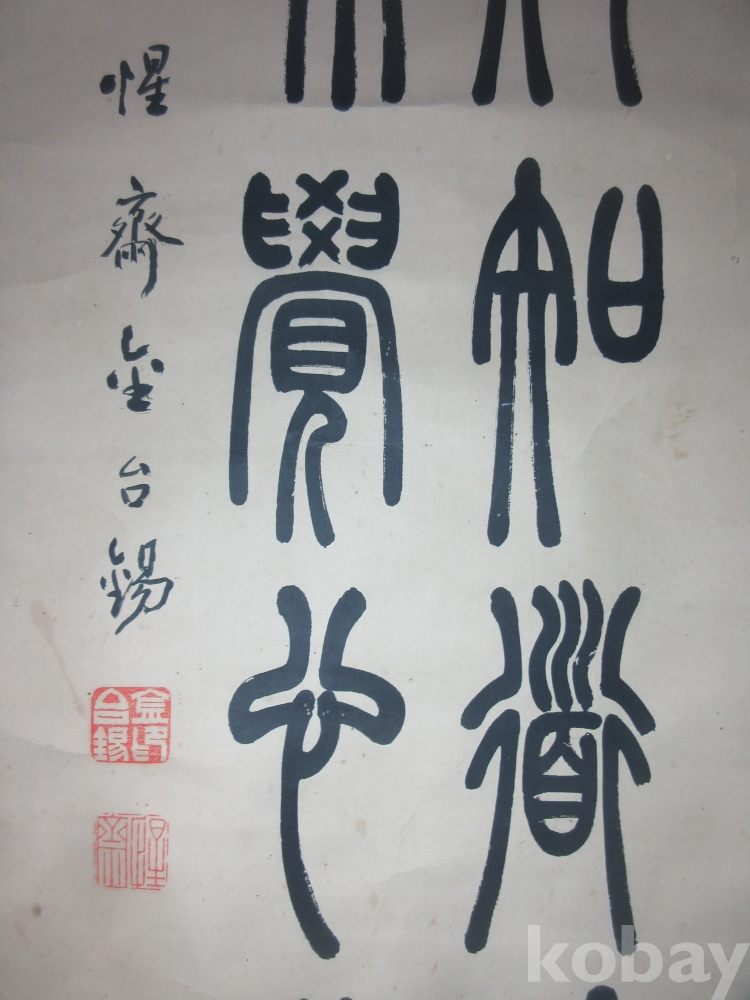 知道
覺也
惺齋金台錫
金印台錫
惺齋
kobay